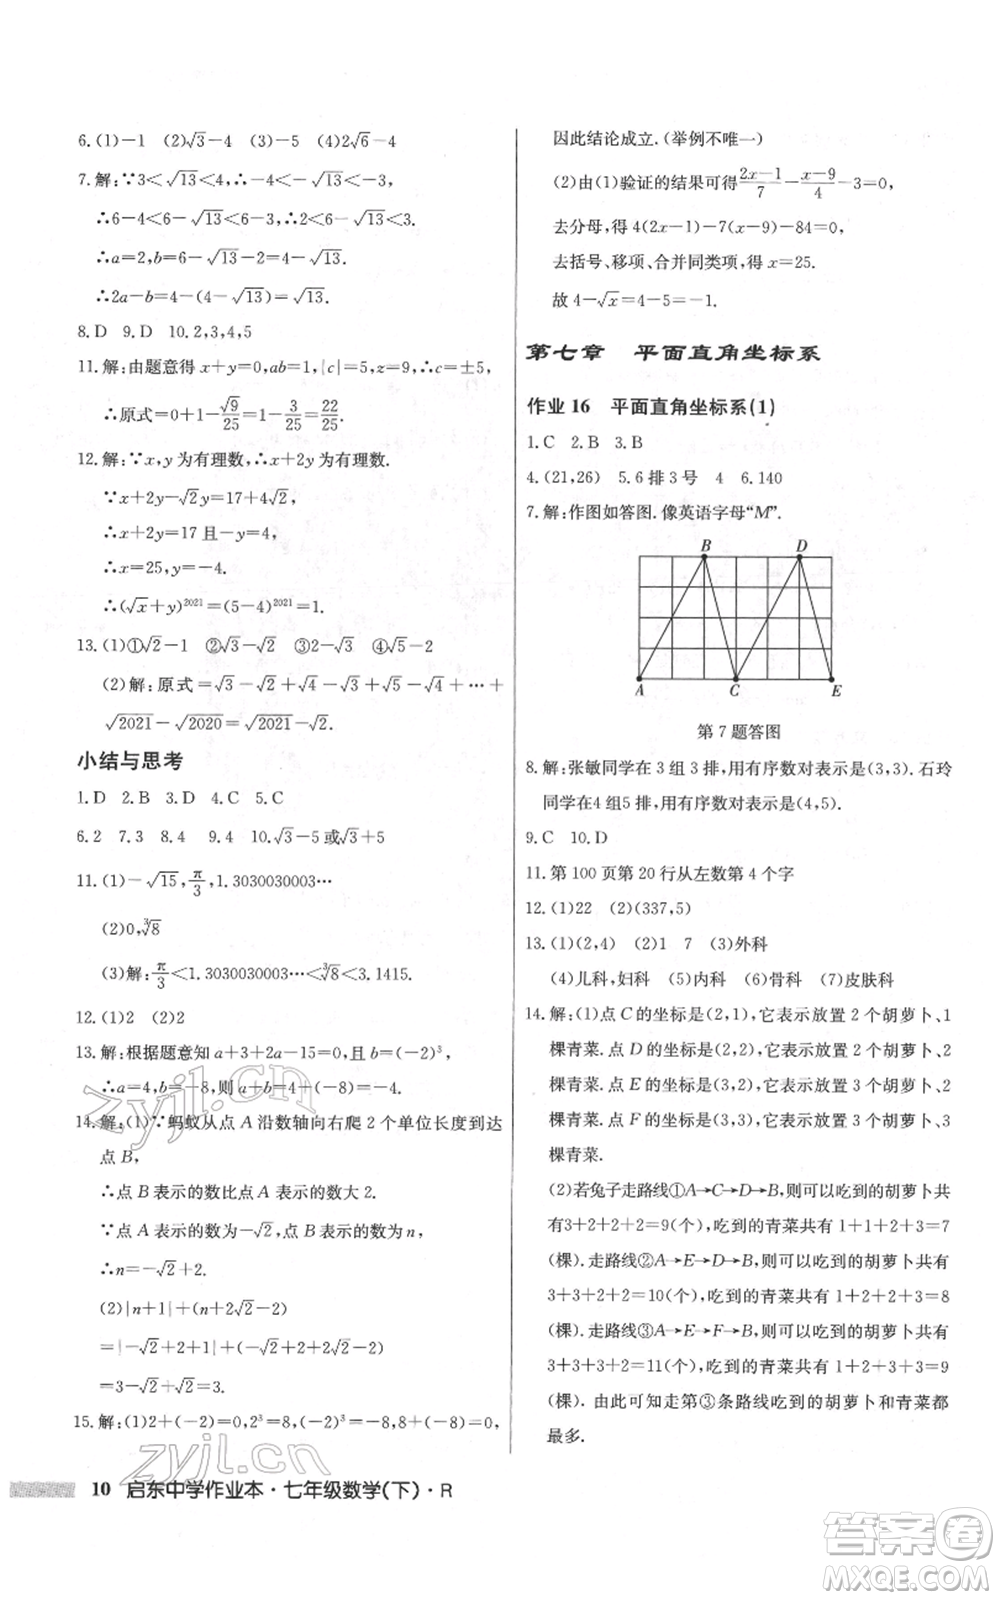 6.(1)-1　(2)√3-4　(3)-5　(4)2√6-4
7.解:∵3<√13<4,∴-4<-√13<-3,
∴6-4<6-√13<6-3,∴2<6-√13<3.
∴a=2,b=6-√13-2=4-√13.
∴2a-b=4-(4-√13)=√13.
8.D　9.D　10.2,3,4,5
11.解:由题意得 x+y=0,ab=1,|c|=5,z=9,∴c=±5,
∴原式=0+1-√9/25=1-3/25=22/25.
12.解:∵x,y为有理数,∴x+2y为有理数.
∵x+2y-√2y=17+4√2,
∴x+2y=17 且-y=4.
∴x=25,y=-4.
∴(√x+y)²⁰²¹=(5-4)²⁰²¹=1.
13.(1)①√2-1　②√3-√2　③√4-√3
(2)解:原式=√3-√2+√4-√3+√5-√4+…+
√2021-√2020=√2021-√2.
小结与思考
1.D　2.B　3.D　4.C　5.C
6.2　7.3　8.4　9.4　10.√3-5或√3+5
11.(1)-√15,π/3,1.3030030003…
(2)0,∛8
(3)解:π/3<1.3030030003…<∛8<3.1415.
12.(1)2　(2)2
13.解:根据题意知 a+3+2a-15=0,b=(-2)³,
∴a=4,b=-8,则 a+b=4+(-8)=-4.
14.解:(1)∵蚂蚁从点 A 沿数轴向右爬 2 个单位长度到达
点 B,
∴点 B 表示的数比点 A 表示的数大 2.
∵点 A 表示的数为-√2,点 B 表示的数为n,
∴n=-√2+2.
(2)|n+1|+(n+2√2-2)
=|-√2+2+1|+(-√2+2+2√2-2)
=3-√2+√2=3.
15.解:(1)2+(-2)=0,2³=8,(-2)³=-8,8+(-8)=0,
10 启东中学作业本·七年级数学(下)·R
因此结论成立.(举例不唯一)
(2)由(1)验证的结果可得(2x-1)/7-(x-9)/4-3=0,
去分母,得 4(2x-1)-7(x-9)-84=0,
去括号、移项、合并同类项,得 x=25.
故 4-√x=4-5=-1.
第七章　平面直角坐标系
作业 16　平面直角坐标系(1)
1.C　2.B　3.B
4.(21,26)　5.6 排 3 号　4　6.140
7.解:作图如答图.像英语字母“M”.
B D
A C E
第 7 题答图
8.解:张敏同学在 3 组 3 排,用有序数对表示是(3,3).石玲
同学在4 组5 排,用有序数对表示是(4,5).
9.C　10.D
11.第 100 页第 20 行从左数第 4 个字
12.(1)22　(2)(337,5)
13.(1)(2,4)　(2)1　7　(3)外科
(4)儿科,妇科　(5)内科　(6)骨科　(7)皮肤科
14.解:(1)点 C 的坐标是(2,1),它表示放置 2 个胡萝卜、1
棵青菜.点 D 的坐标是(2,2),它表示放置 2 个胡萝卜、2
棵青菜.点 E 的坐标是(3,2),它表示放置 3 个胡萝卜、2
棵青菜.点 F 的坐标是(3,3),它表示放置 3 个胡萝卜、3
棵青菜.
(2)若兔子走路线①A→C→D→B,则可以吃到的胡萝卜共
有3+2+2+2=9(个),吃到的青菜共有 1+1+2+3=7
(棵).走路线②A→E→D→B,则可以吃到的胡萝卜共有
3+3+2+2=10(个),吃到的青菜共有 1+2+2+3=8
(棵).走路线③A→E→F→B,则可以吃到的胡萝卜共有
3+3+3+2=11(个),吃到的青菜共有 1+2+3+3=9
(棵).由此可知走第③条路线吃到的胡萝卜和青菜都
最多.
zyjl.cn
zyjl.cn
答案圈
MXQE.COM